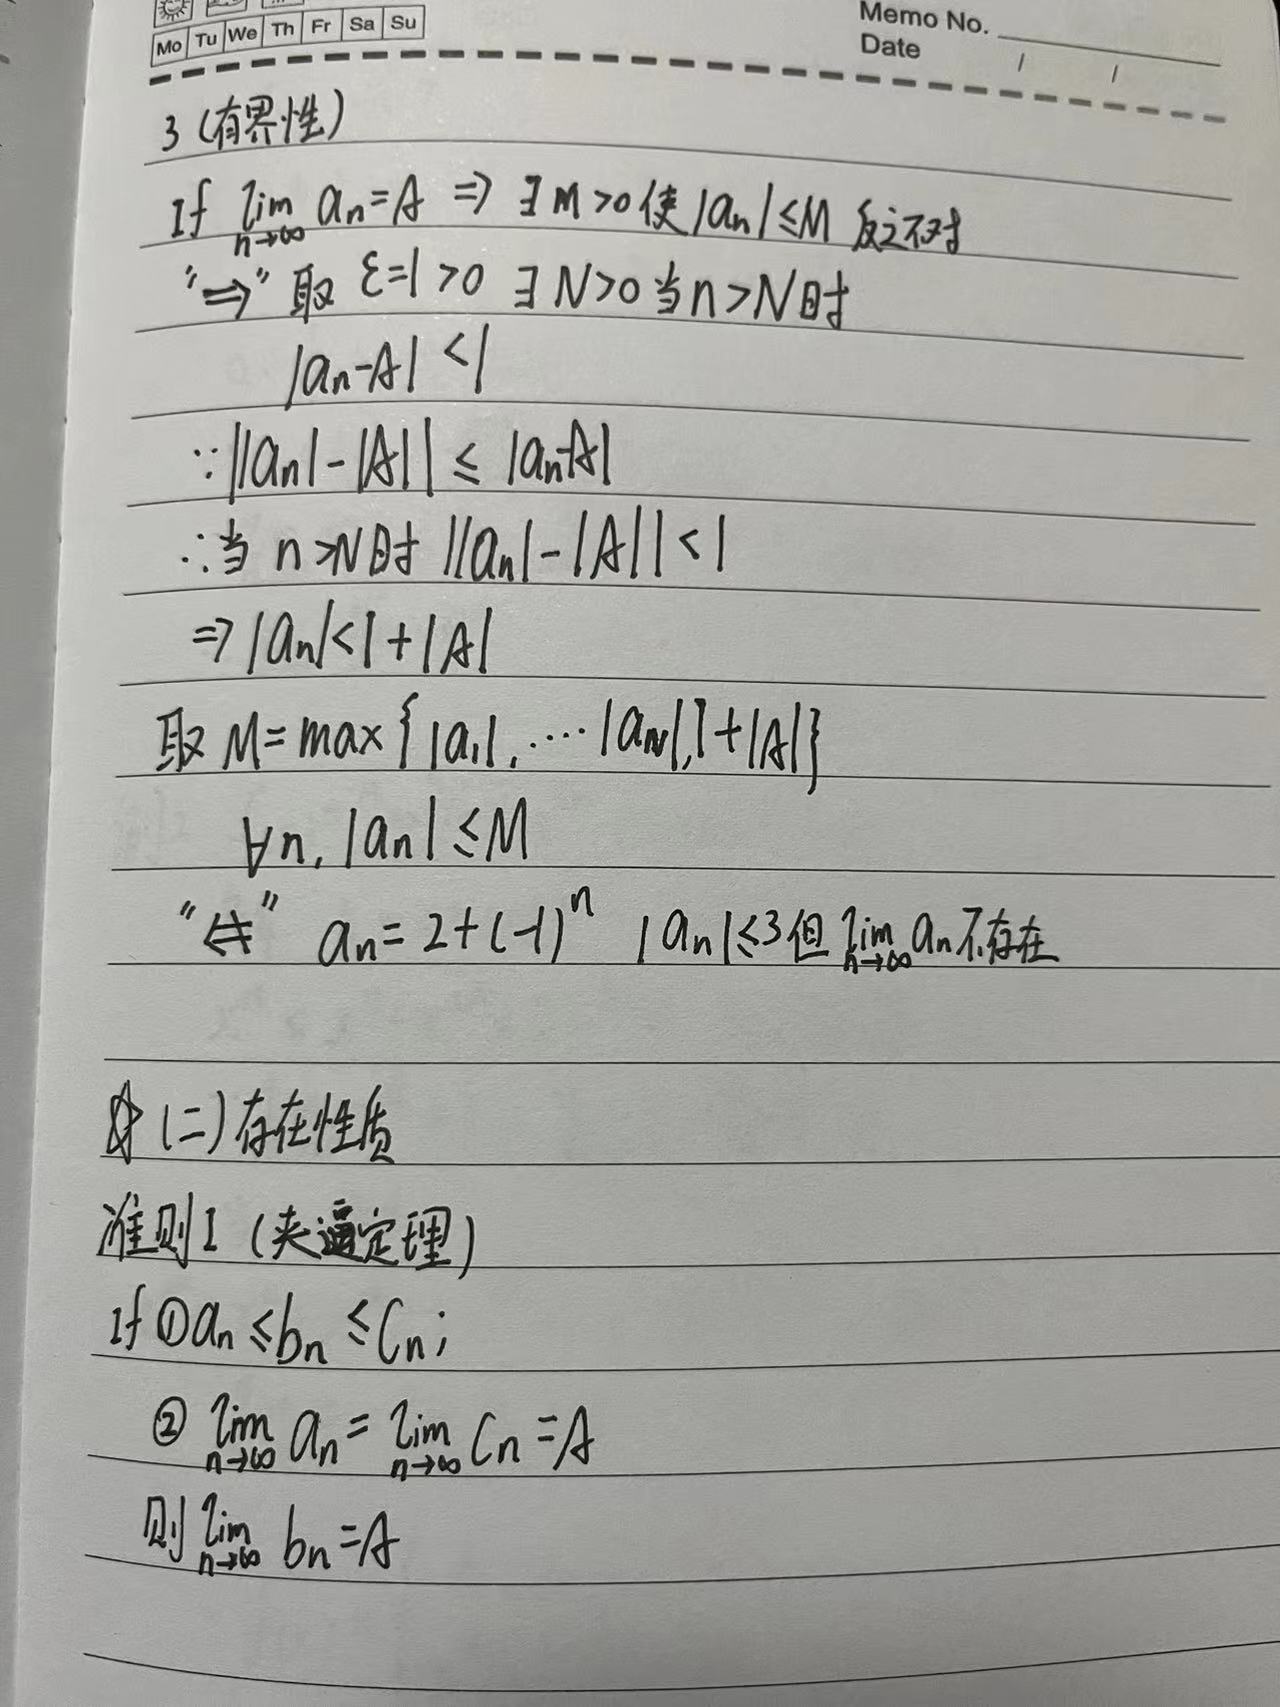 Mo Tu We Th Fr Sa Su
Memo No.
Date / /
3 (有界性)
If lim n→∞ an=A ⇒ ∃M>0使|an|≤M 反之不对
"⇒" 取 ε=1>0 ∃N>0当n>N时
|an-A|<1
∵||an|-|A||≤|an-A|
∴当n>N时||an|-|A||<1
⇒|an|<1+|A|
取M=max{|a1|,····|aN|,1+|A|}
∀n,|an|≤M
"⇍" an=2+(-1)^n |an|≤3但lim n→∞ an不存在
☆(二)存在性质
准则I(夹逼定理)
If ①an≤bn≤Cn;
② lim n→∞ an=lim n→∞ Cn=A
则lim n→∞ bn=A